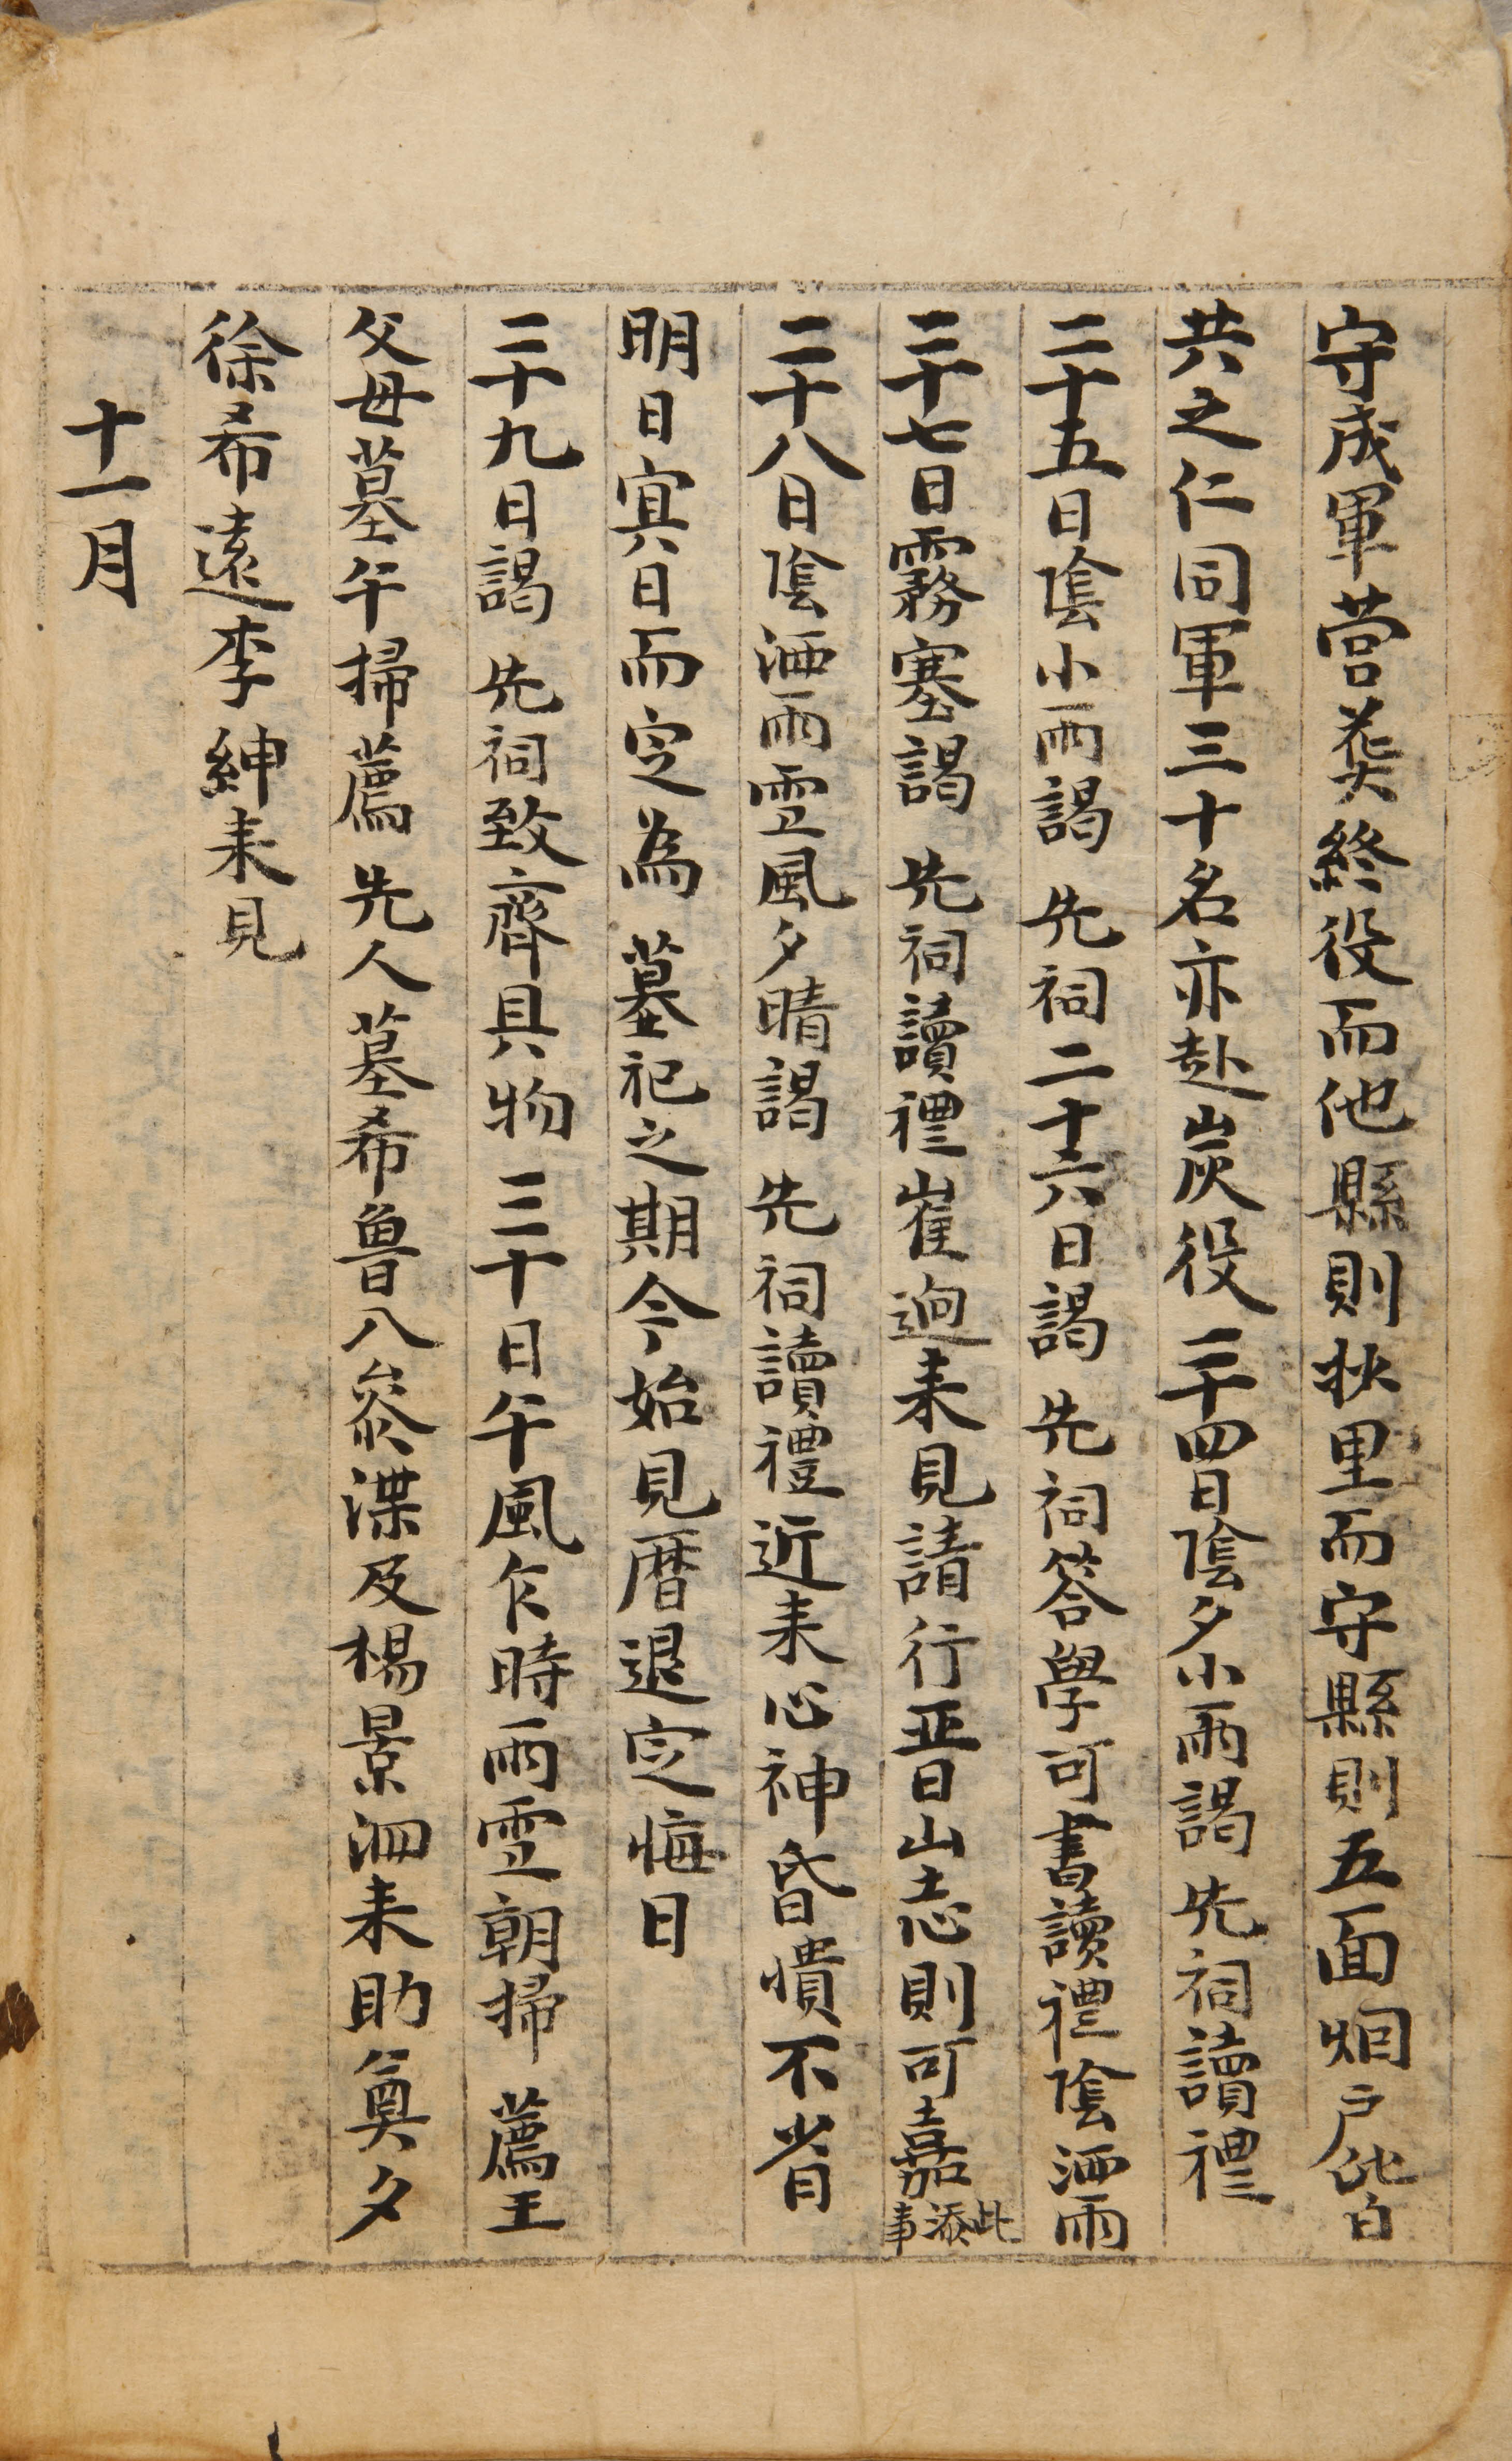 守成軍営葬終役而他縣則狄里而守縣則五面烟戶皆
共之仁同軍三十名亦赴炭役二十四日陰夕小雨謁 先祠讀禮
二十五日陰小雨謁 先祠二十六日謁 先祠答學可書讀禮陰洒雨
二十七日霧塞謁 先祠讀禮崔逈来見請行晋山志則可嘉此添事
二十八日陰洒雨雪風夕晴謁 先祠讀禮近来心神昏憒不省
明日寅日而定為 墓祀之期今始見曆退定晦日
二十九日謁 先祠致齊具物 三十日午風乍時雨雪朝掃 薦王
父母墓午掃薦 先人墓希魯八叅渫及楊景泗来助奠夕
徐希遠李紳来見
十一月